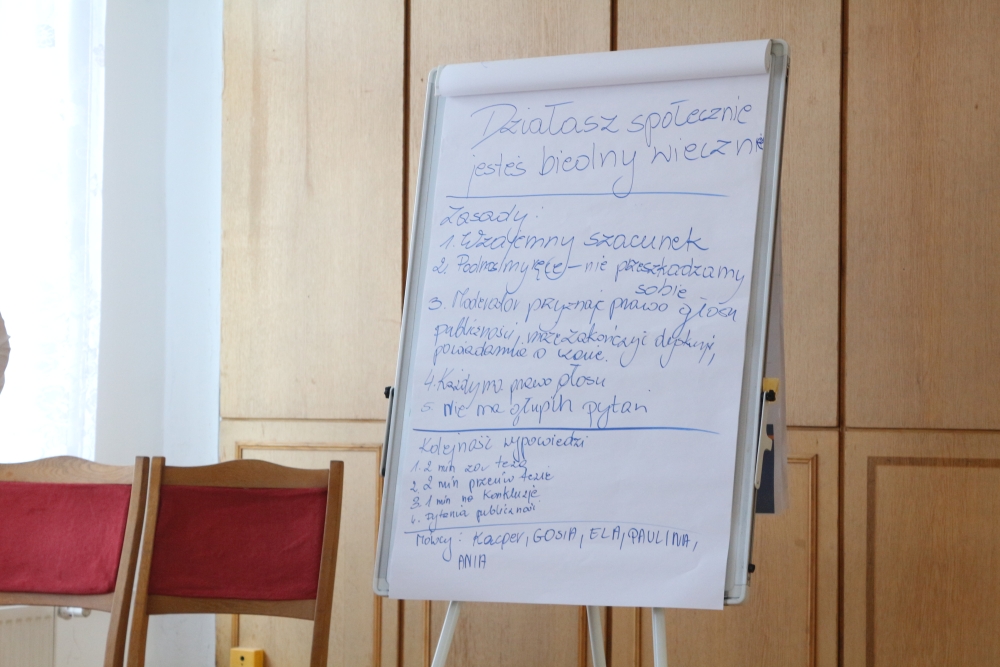 Działasz społecznie
jesteś biedny wiecznie
Zasady:
1. Wzajemny szacunek
2. Podnosimy ręce - nie przeszkadzamy
sobie
3. Moderator przyznaje prawo głosu
publiczności, może zakończyć dyskusję,
powiadamia o czasie.
4. Każdy ma prawo głosu
5. Nie ma głupich pytań
Kolejność wypowiedzi
1. 2 min za tezą
2. 2 min przeciw tezie
3. 1 min na konkluzje
4. Pytania publiczności
Mówcy: Kacper, GOSIA, ELA, PAULINA,
ANIA